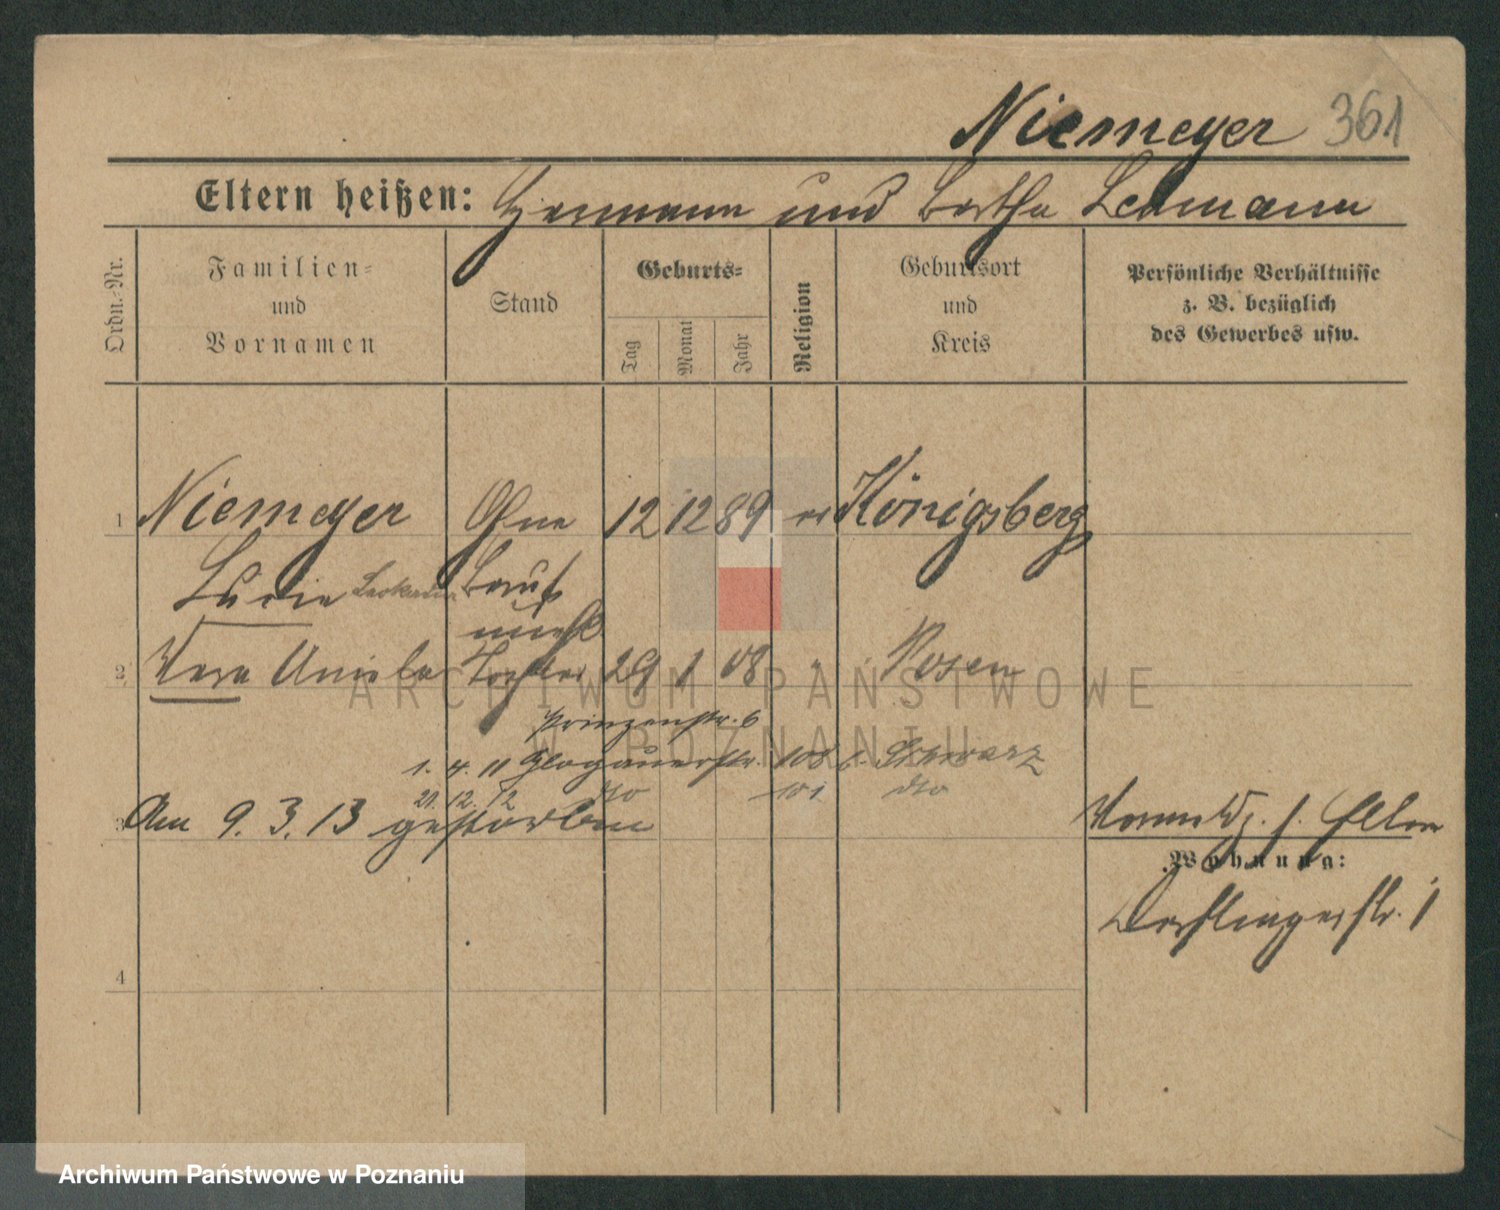 Niemeyer 361
Eltern heißen: Hermann und Bertha Lehmann
Ordn.-Nr.
Familien-
und
Vornamen
Stand
Geburts-
Tag
Monat
Jahr
Religion
Geburtsort
und
Kreis
Persönliche Verhältnisse
z. B. bezüglich
des Gewerbes usw.
1 Niemeyer Ohne 12 12 89 ev Königsberg
Lucie Beruf
2 Vera Aniela Tochter 29 1 08 Posen
Prinzenstr. 6
1. 4. 11 Glogauerstr. 108 b. Schwarz
21. 12. 12 dto 101 dto
3 Am 9. 3. 13 gestorben
Wohnung:
Derfflingerstr. 1
4
ARCHIWUM PAŃSTWOWE
W POZNANIU
Archiwum Państwowe w Poznaniu